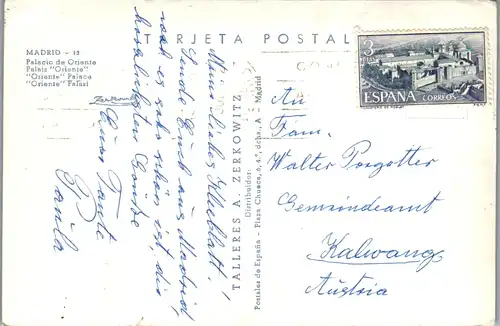 TARJETA POSTAL
MADRID - 15
Palacio de Oriente
Palais "Oriente"
"Oriente" Palace
"Oriente" Palast
Mein liebes Kleeblatt!
Sende Euch aus Madrid,
wo es sehr schön ist, die
herzlichsten Grüße
Eure Tante
Paula
TALLERES A. ZERKOWITZ
Distribuidor:
Postales de España - Plaza Chueca, 6, 4.º, dcha. A - Madrid
3
PTAS
ESPAÑA
CORREOS
An
Fam.
Walter Porgotter
Gemeindeamt
Kalwang
Austria